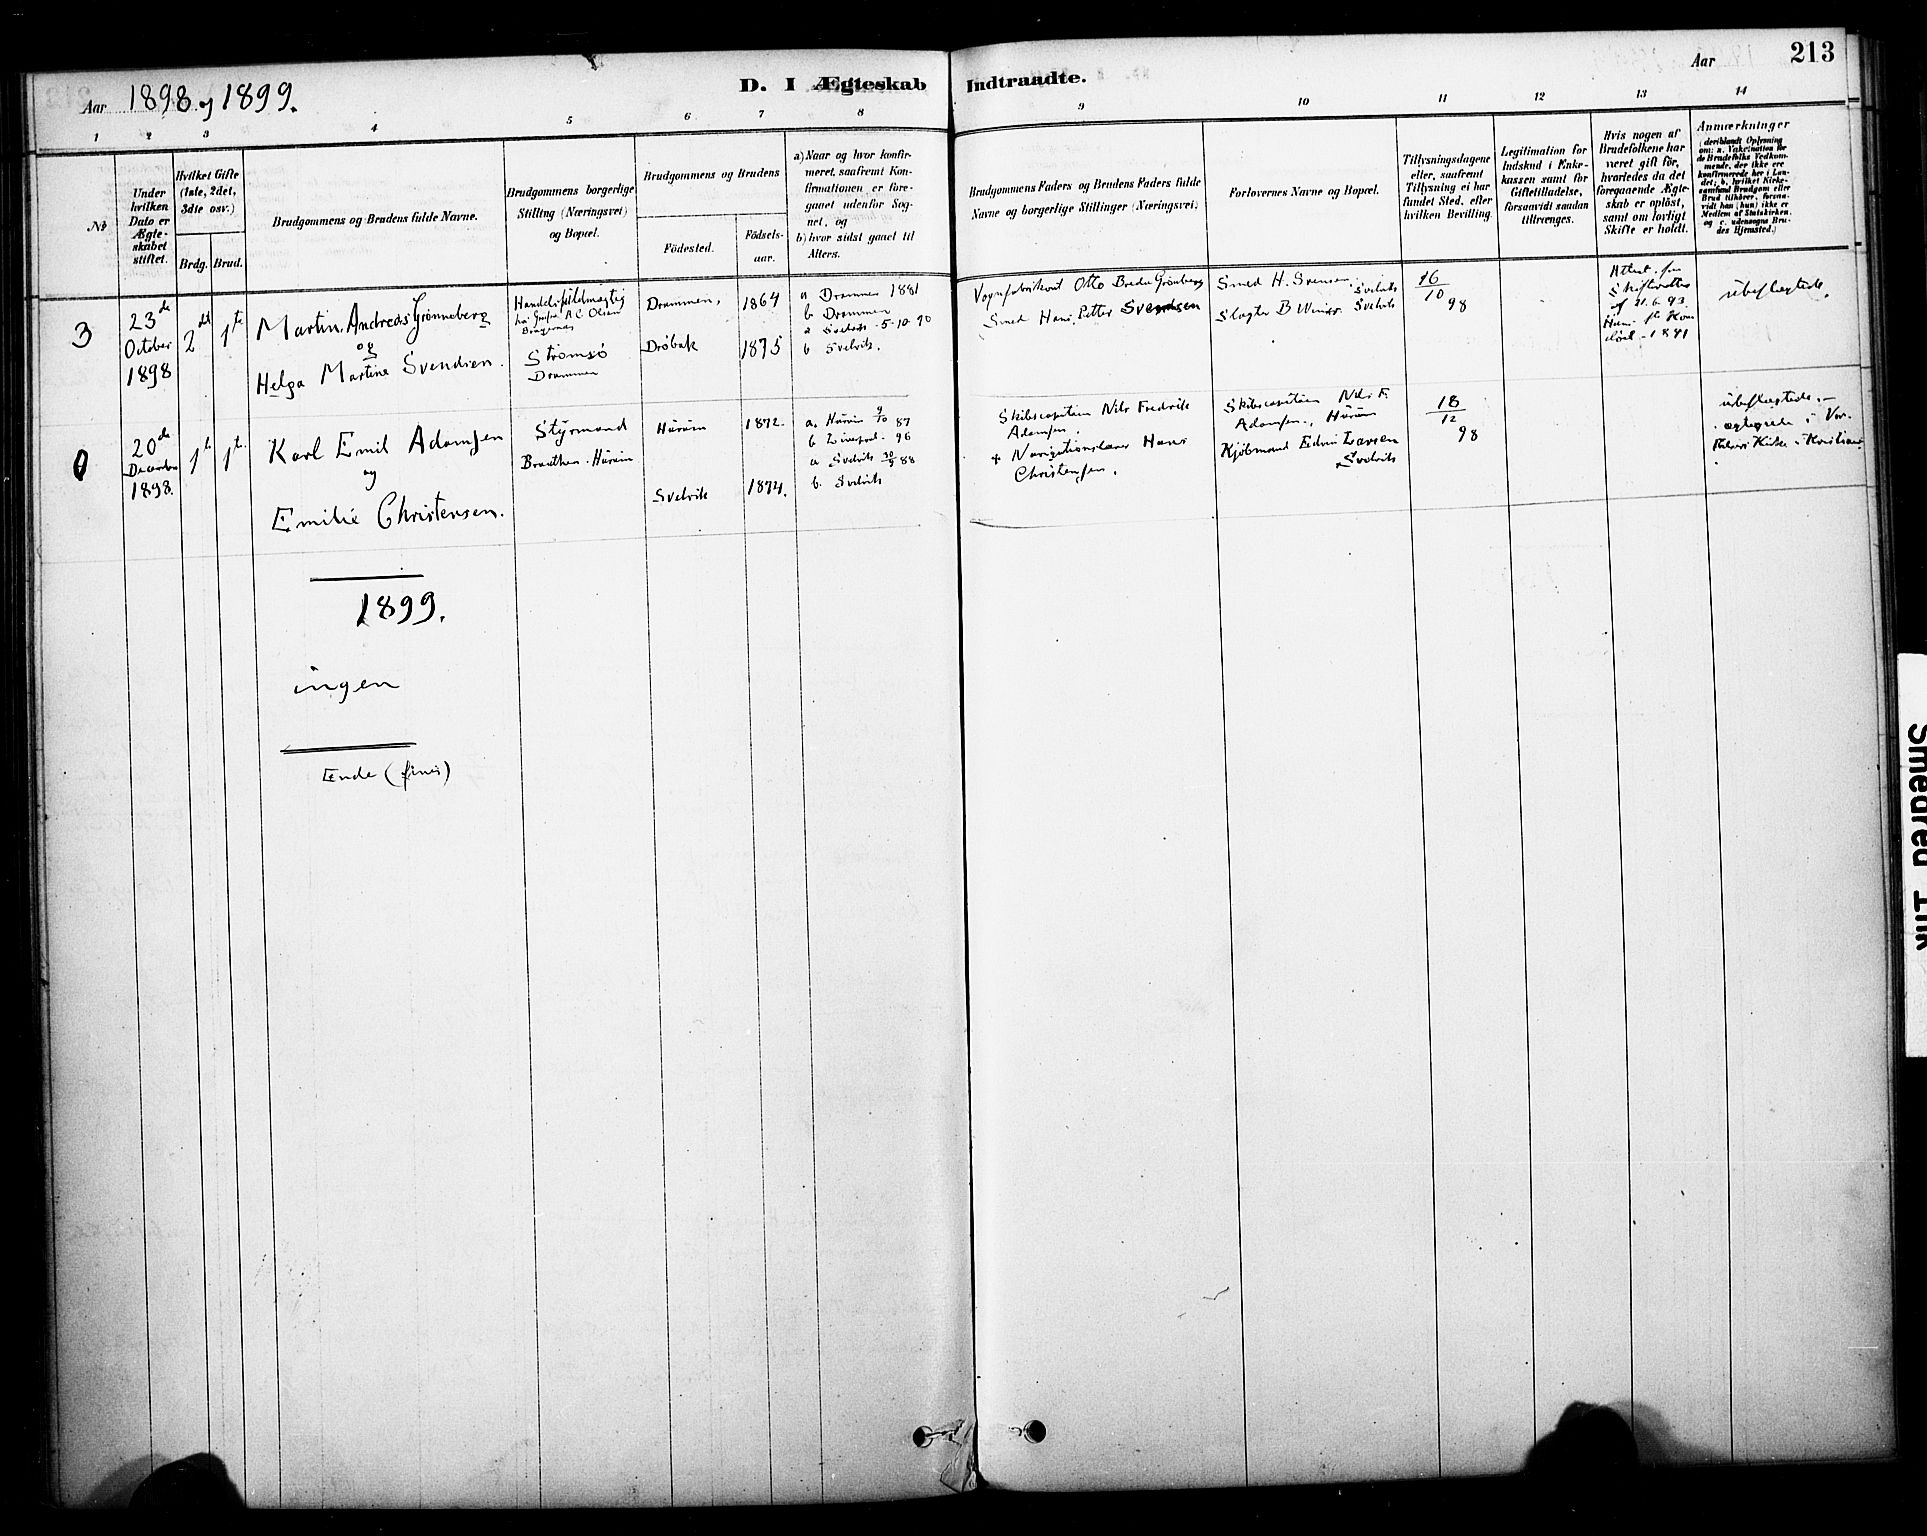 Aar 1898 og 1899.
D. I Ægteskab Indtraadte.
Aar
213
1 2 3 4 5 6 7 8 9 10 11 12 13 14
No
Under hvilken Dato er Ægteskabet stiftet.
Hvilket Gifte (1ste, 2det, 3die osv.)
Brdg. Brud.
Brudgommens og Brudens fulde Navne.
Brudgommens borgerlige Stilling (Næringsvei) og Bopæl.
Brudgommens og Brudens
Födested.
Födselsaar.
a) Naar og hvor konfirmeret, saafremt Konfirmationen er foregaaet udenfor Sognet, og
b) hvor sidst gaaet til Alters.
Brudgommens Faders og Brudens Faders fulde Navne og borgerlige Stillinger (Næringsvei)
Forlovernes Navne og Bopæl.
Tillysningsdagene eller, saafremt Tillysning ei har fundet Sted, efter hvilken Bevilling.
Legitimation for Indskud i Enkekassen samt for Giftetilladelse, forsaavidt saadan tiltrænges.
Hvis nogen af Brudefolkene har været gift för, hvorledes da det foregaaende Ægteskab er oplöst, samt om lovligt Skifte er holdt.
Anmærkninger
3
23de October 1898
2det 1ste
Martin Andreas Grönneberg
og
Helga Martine Svendsen.
Handelsfuldmægtig
A C Olsen
Strömsö
Drammen
Drammen, 1864
Dröbak 1875
a Drammen 1881
b Drammen
a Svelvik 5-10-90
b Svelvik.
Vognfabrikant Otto Brede Grönberg
Smed Hans Petter Svendsen
Smed H. Svensen, Svelvik
Slagter B Svelvik
16/10 98
Attest fra Skifteretten af 21.6.93.
ubeslægtede.
20de December 1898.
1ste 1ste
Karl Emil Adamsen
og
Emilie Christensen.
Styrmand
Braathen. Hurum
Hurum 1872.
Svelvik 1874.
a. Hurum 9/10 87
b Liverpool. 96
a Svelvik 30/9 88
b. Svelvik
Skibscaptain Nils Fredrik
Adamsen.
+ Navigationslærer Hans
Christensen.
Skibscaptain Nils F.
Adamsen., Hurum
Kjöbmand Edvin Larsen
Svelvik
18/12 98
ubeslægtede. –
ægteviede i Vor
Frelsers Kirke i Kristiania
1899.
ingen
Ende (finis)
Smeared Ink